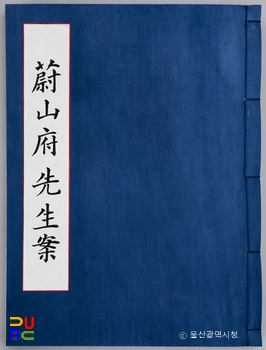 蔚山府先生案
© 울산광역시청.